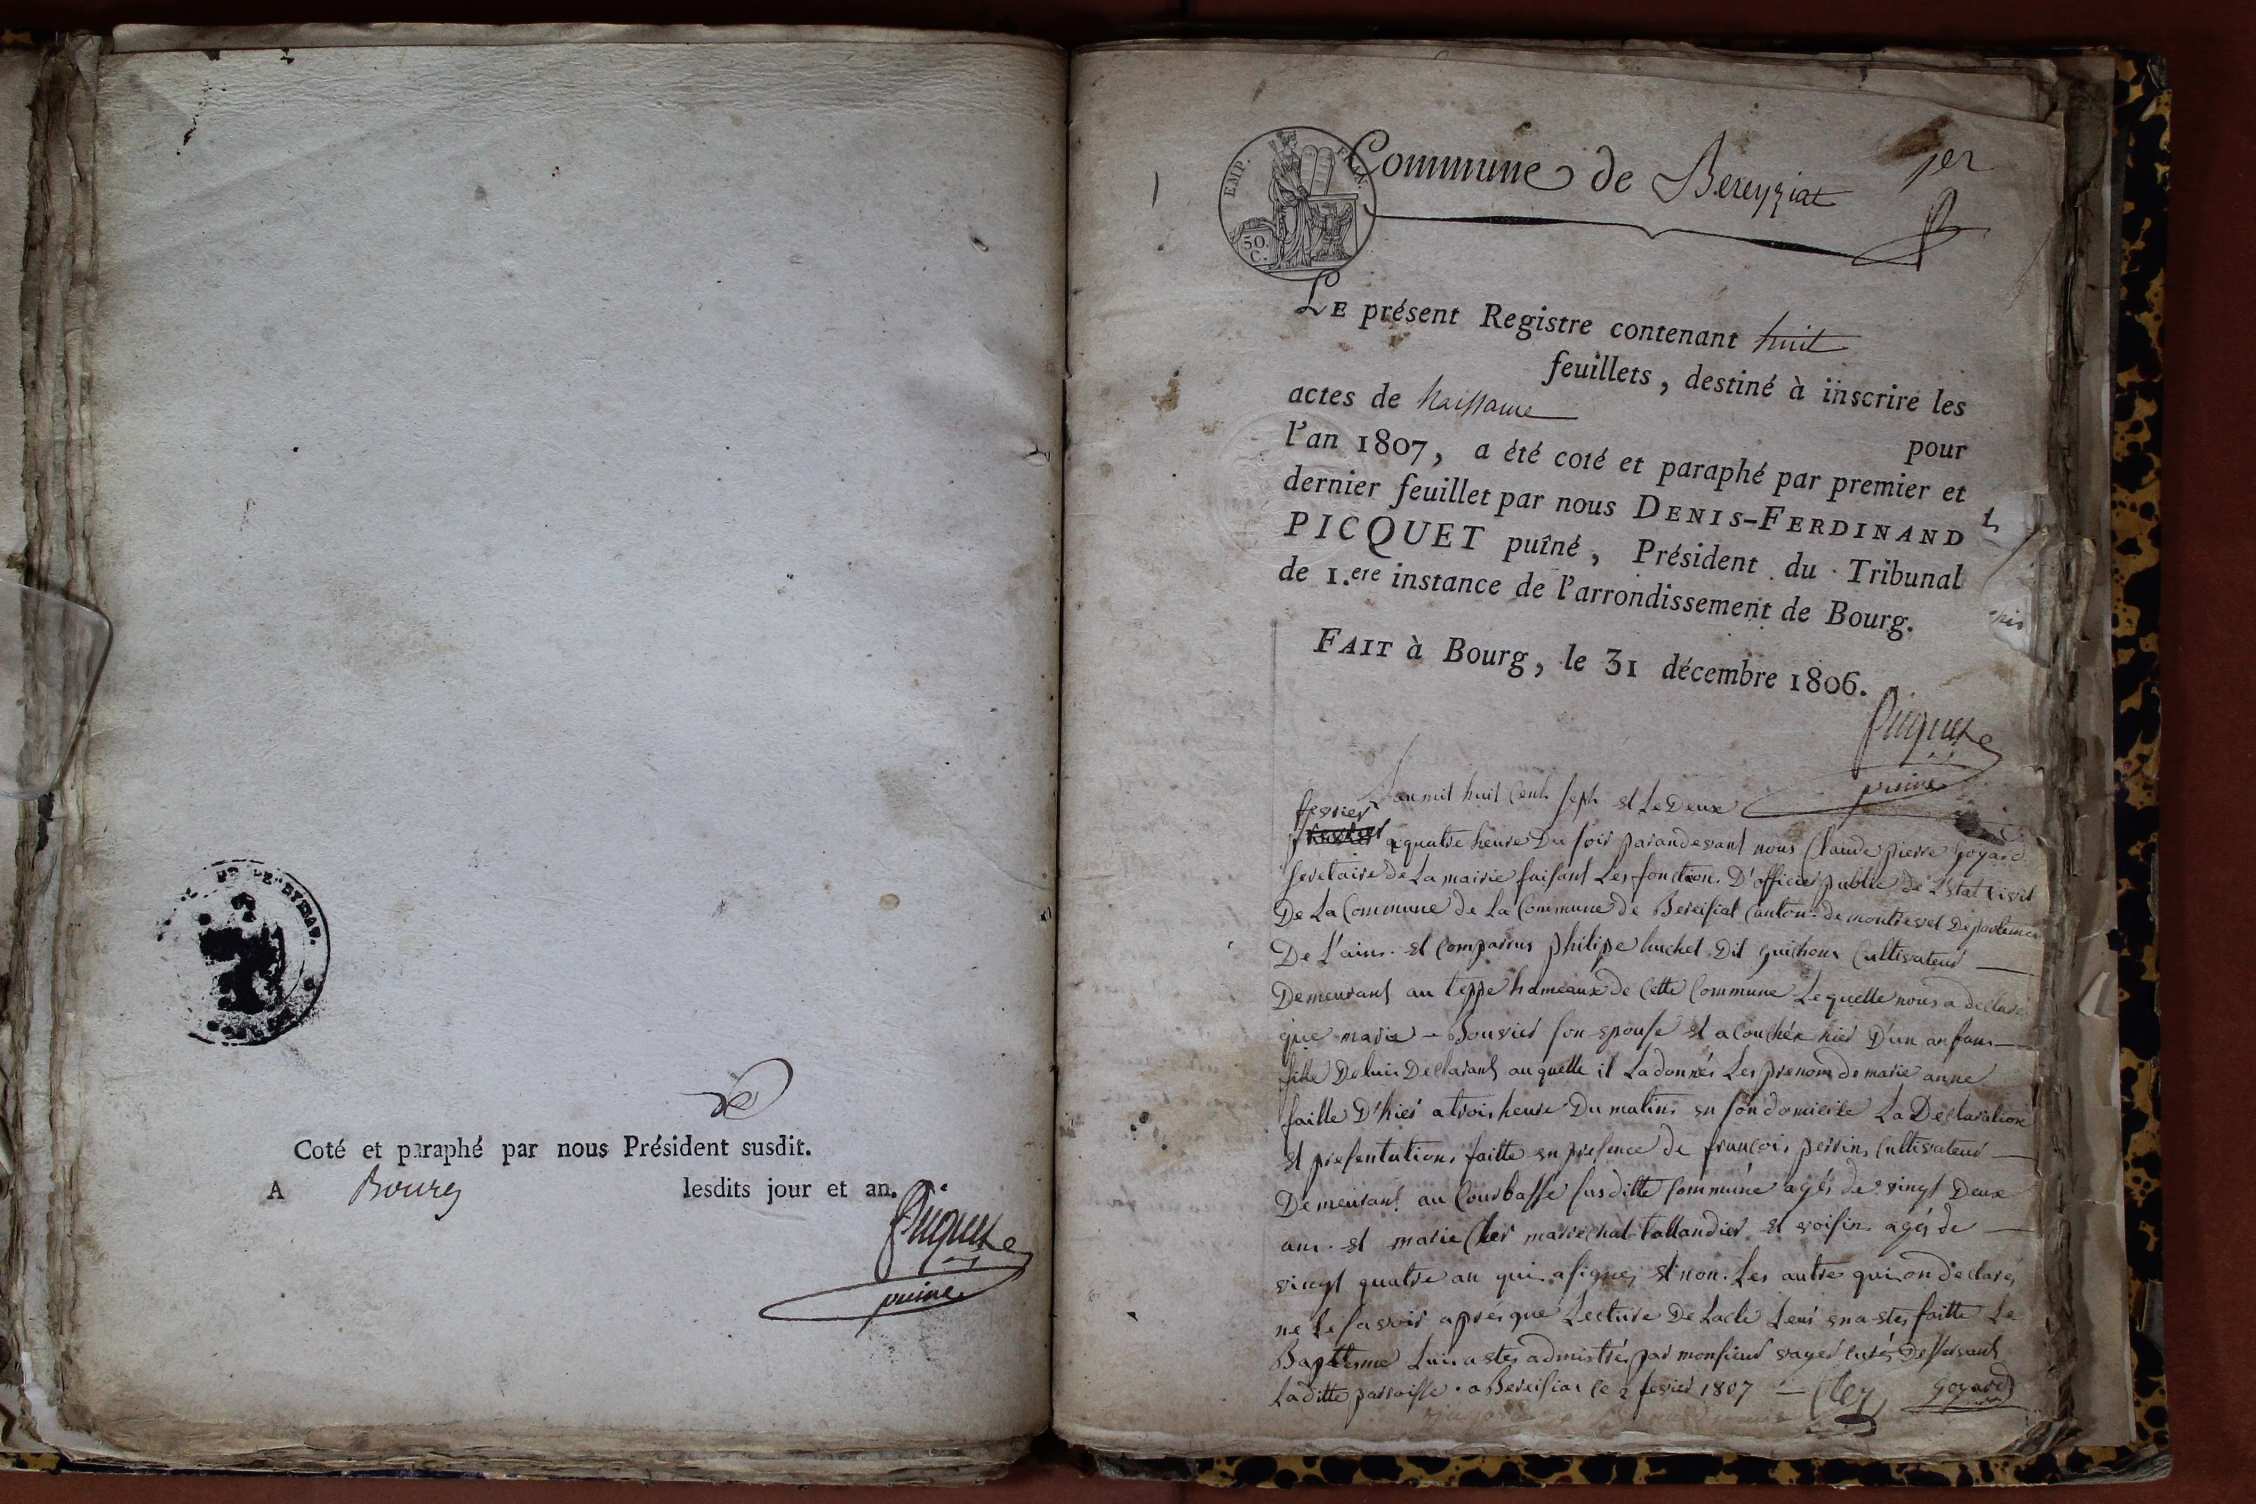 Coté et paraphé par nous Président susdit.
A Bourg lesdits jour et an.
Picquet
puine
EMP. FRAN.
50. C.
Commune de Bereyziat
1er
LE présent Registre contenant huit
feuillets, destiné à inscrire les
actes de Naissance pour
l'an 1807, a été coté et paraphé par premier et
dernier feuillet par nous DENIS-FERDINAND
PICQUET puîné, Président du Tribunal
de 1.ere instance de l'arrondissement de Bourg.
FAIT à Bourg, le 31 décembre 1806.
Picquet
puine
L'an mil huit Cent sept et Le Deux
fevrier
a quatre heure Du soir parandevant nous Claude pierre Goyard
secretaire De La mairie faisant Les fonction D'officier public De L'Etat Civil
De La Commune de La Commune de Bereisiat Canton de montrevel Departement
De L'ain. et comparus philipe huchet Dit guichon Cultivateur
Demeurant au teppe hameaux de Cette Commune Lequelle nous a declaré
que marie Bouvier son epouse et acouchée hier D'un anfans
fille De lui Declarant au quelle il La donnés Les prenom de marie anne
faille D'hier a trois heure Du matin en son domicile La Declaration
et presentation faitte en presence de francois perrin Cultivateur
Demeurant au Courbasse susditte Commune agés de vingt Deux
ans et marie Cler marechal tallandier et voisin agés de
vingt quatre an qui a signé et non Les autre qui on declarés
ne le savoir aprés que Lecture De Lacte Leur en a etes faitte Le
Baptesme Lui a etes admistrés par monsieur vayer curés Desservant
La ditte parroisse. a Bereisiat le 2 fevrier 1807 Cler Goyard